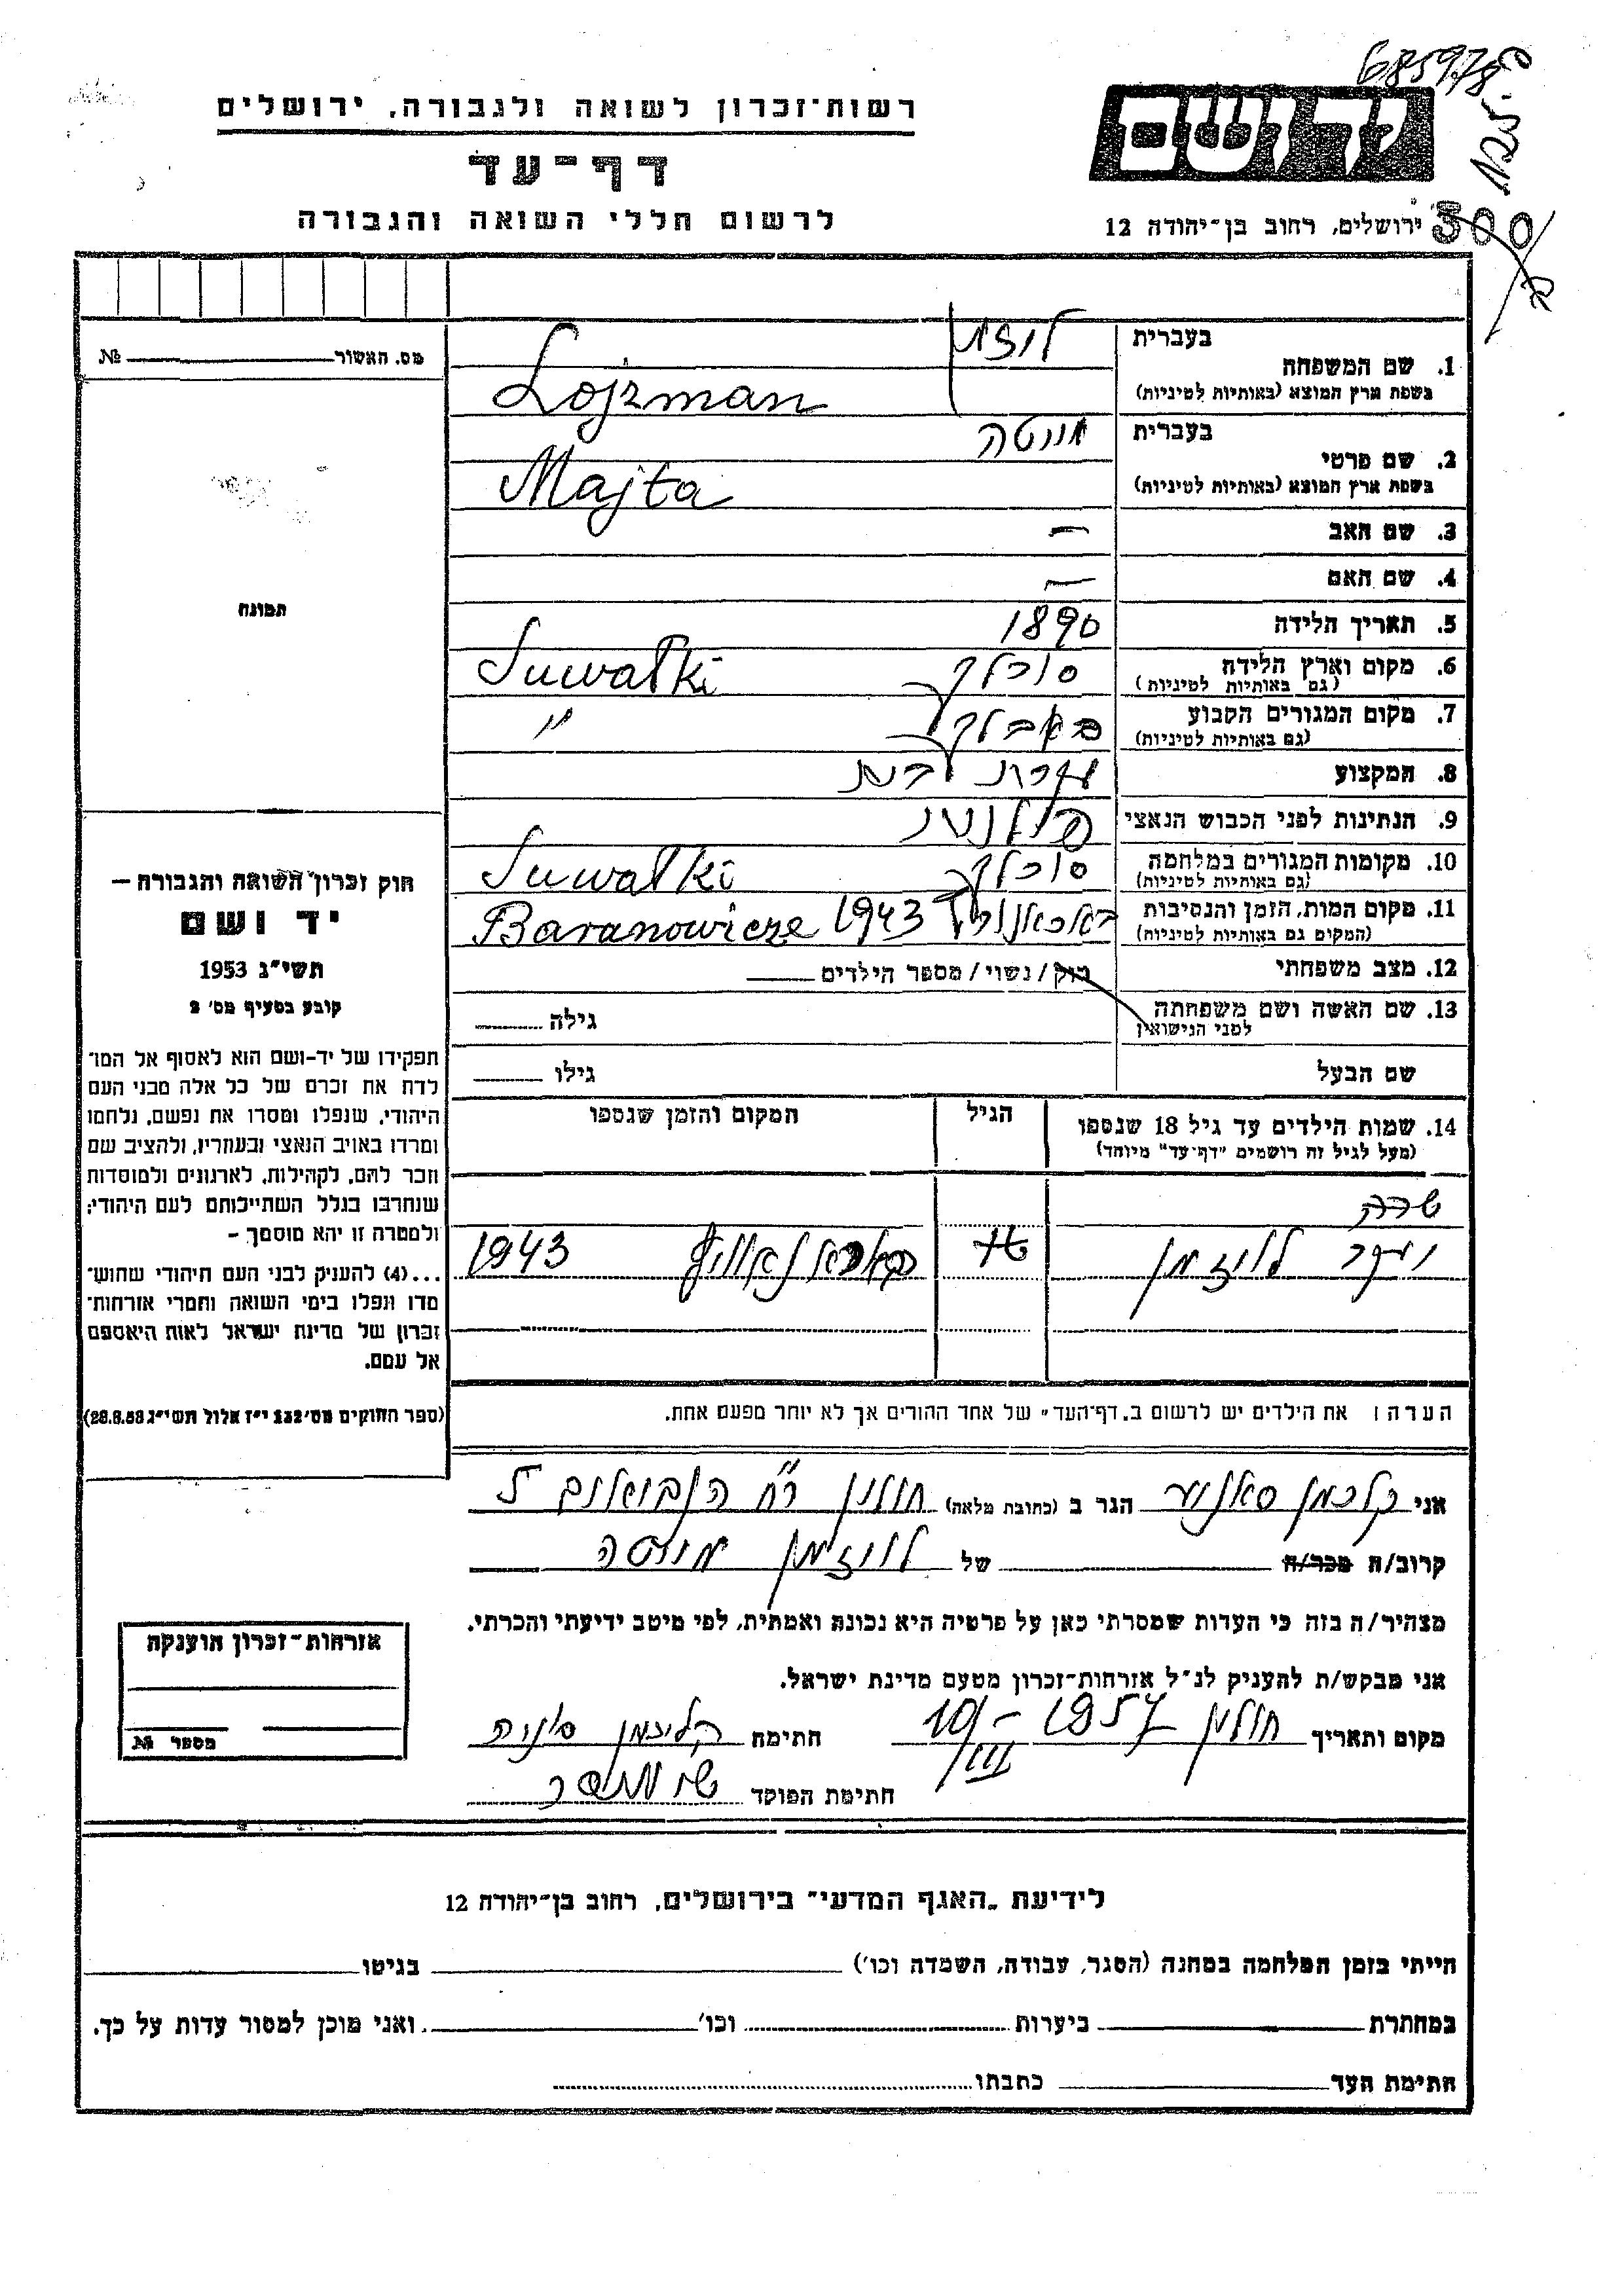 685978
רשות־זכרון לשואה ולגבורה, ירושלים
דף־עד
לרשום חללי השואה והגבורה
ירושלים, רחוב בן־יהודה 12
300
מס. האשור №
תמונה
1. שם המשפחה
בעברית
בשפת ארץ המוצא (באותיות לטיניות)
Lojzman
2. שם פרטי
בעברית
בשפת ארץ המוצא (באותיות לטיניות)
Majta
3. שם האב —
4. שם האם —
5. תאריך הלידה 1890
6. מקום וארץ הלידה
(גם באותיות לטיניות)
Suwałki
7. מקום המגורים הקבוע
(גם באותיות לטיניות)
"
8. המקצוע
9. הנתינות לפני הכבוש הנאצי
10. מקומות המגורים במלחמה
(גם באותיות לטיניות)
Suwałki
11. מקום המות, הזמן והנסיבות
(המקום גם באותיות לטיניות)
1943 Baranowicze
12. מצב משפחתי
רוק/נשוי/מספר הילדים
13. שם האשה ושם משפחתה
לפני הנישואין
גילה
שם הבעל
גילו
14. שמות הילדים עד גיל 18 שנספו
(מעל לגיל זה רושמים "דף־עד" מיוחד)
הגיל
המקום והזמן שנספו
שרה
לויזמן
1943
הערה: את הילדים יש לרשום ב„דף־העד" של אחד ההורים אך לא יותר מפעם אחת.
חוק זכרון השואה והגבורה —
יד ושם
תשי"ג 1953
קובע בסעיף מס' 2
תפקידו של יד־ושם הוא לאסוף אל המו־
לדת את זכרם של כל אלה מבני העם
היהודי, שנפלו ומסרו את נפשם, נלחמו
ומרדו באויב הנאצי ובעוזריו, ולהציב שם
וזכר להם, לקהילות, לארגונים ולמוסדות
שנחרבו בגלל השתייכותם לעם היהודי;
ולמטרה זו יהא מוסמך –
...(4) להעניק לבני העם היהודי שהוש־
מדו ונפלו בימי השואה והמרי אזרחות־
זכרון של מדינת ישראל לאות היאספם
אל עמם.
(ספר החוקים מס' 132 י"ז אלול תשי"ג 28.8.53)
אני קלכמן הגר ב (כתובת מלאה) חולון רח הנביאים 5
קרוב/ה מכר/ה של לויזמן
מצהיר/ה בזה כי העדות שמסרתי כאן על פרטיה היא נכונה ואמתית, לפי מיטב ידיעתי והכרתי.
אני מבקש/ת להעניק לנ"ל אזרחות־זכרון מטעם מדינת ישראל.
מקום ותאריך חולון 10/III – 1957 חתימה
חתימת הפוקד
אזרחות־זכרון הוענקה
מספר №
לידיעת „האגף המדעי" בירושלים, רחוב בן־יהודה 12
הייתי בזמן המלחמה במחנה (הסגר, עבודה, השמדה וכו') בגיטו
במחתרת ביערות וכו' ואני מוכן למסור עדות על כך.
חתימת העד כתבתו